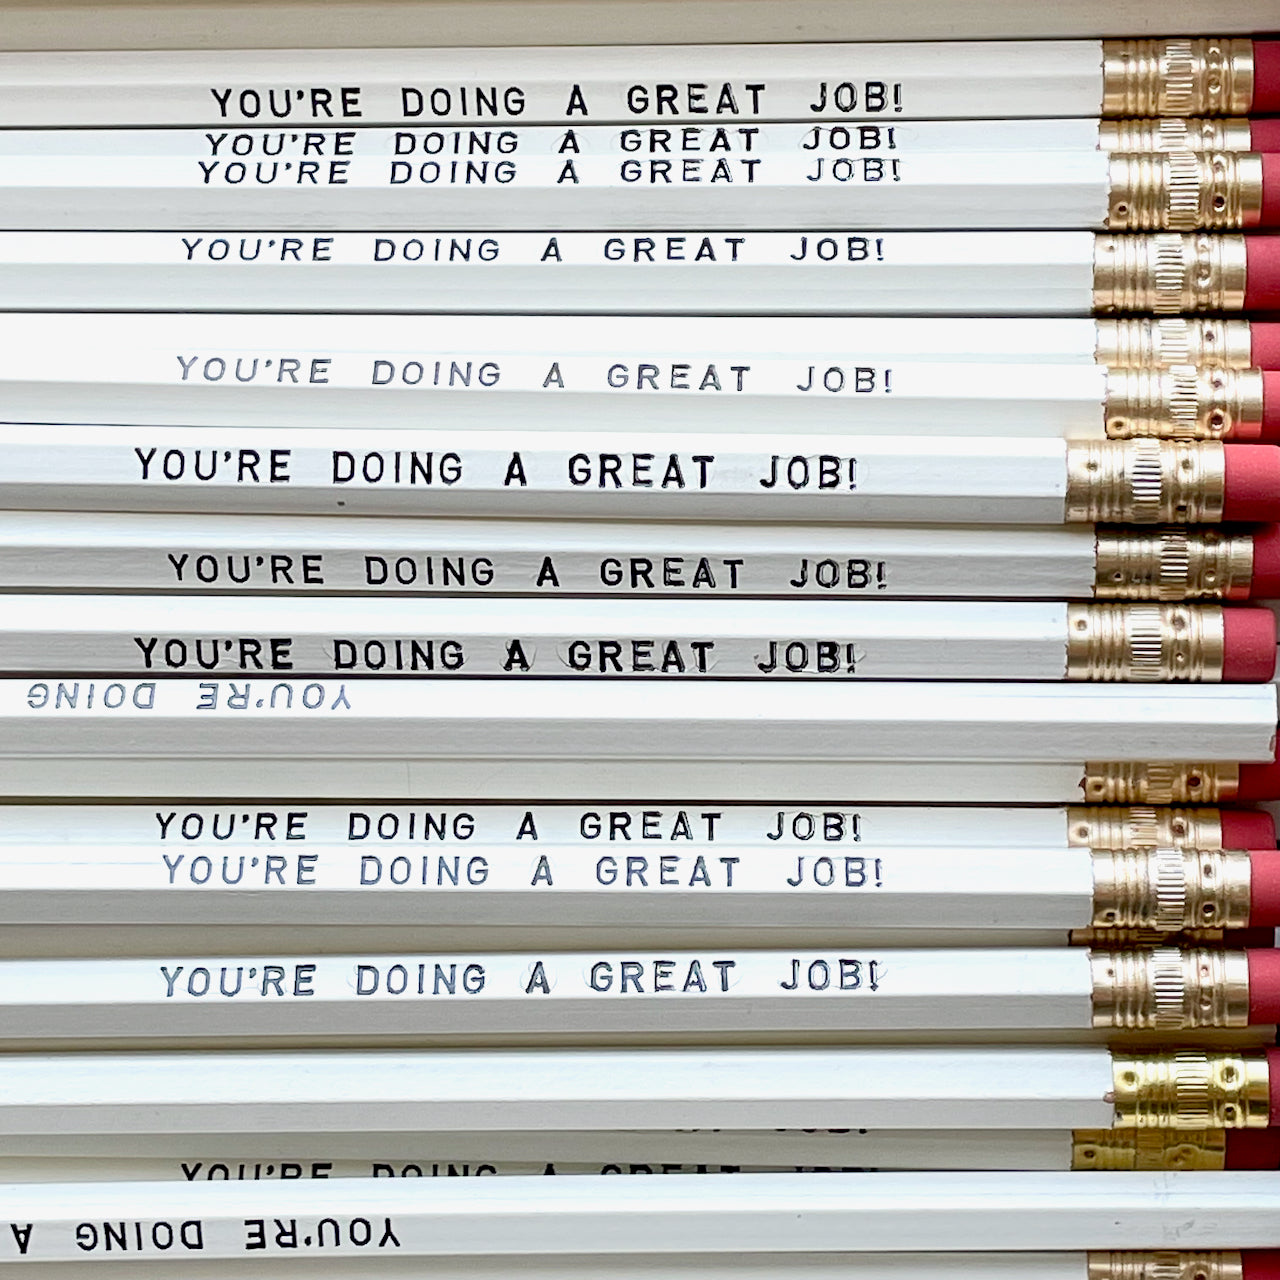 YOU'RE DOING A GREAT JOB!
YOU'RE DOING A GREAT JOB!
YOU'RE DOING A GREAT JOB!
YOU'RE DOING A GREAT JOB!
YOU'RE DOING A GREAT JOB!
YOU'RE DOING A GREAT JOB!
YOU'RE DOING A GREAT JOB!
YOU'RE DOING A GREAT JOB!
YOU'RE DOING
YOU'RE DOING A GREAT JOB!
YOU'RE DOING A GREAT JOB!
YOU'RE DOING A GREAT JOB!
YOU'RE DOING A GREAT JOB!
YOU'RE DOING A